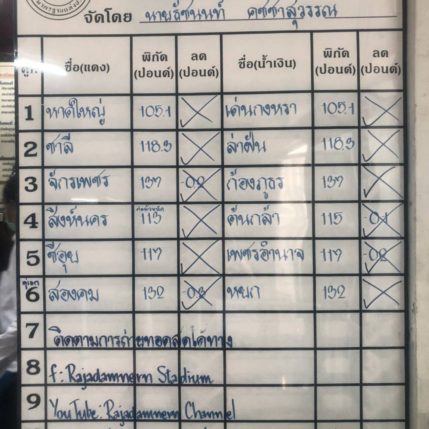 จัดโดย นายธัชนนท์ คชชาสุวรรณ
คู่ที่ ชื่อ(แดง) พิกัด (ปอนด์) ลด (ปอนด์) ชื่อ(น้ำเงิน) พิกัด (ปอนด์) ลด (ปอนด์)
1 หาดใหญ่ 105.1 เด่นกงหรา 105.1
2 ซาลี 118.3 ล่าฝัน 118.3
3 จักรเพชร 137 0.2 ก้องภูธร 137
4 สิงห์นคร 113 ต้นกล้า 115 0.1
5 ซีอุย 117 เพชรอำนาจ 117 0.2
6 สองคม 132 132
7 ติดตามการถ่ายทอดสดได้ทาง
8 f: Rajadamnern Stadium
9 YouTube: Rajadamnern Channel